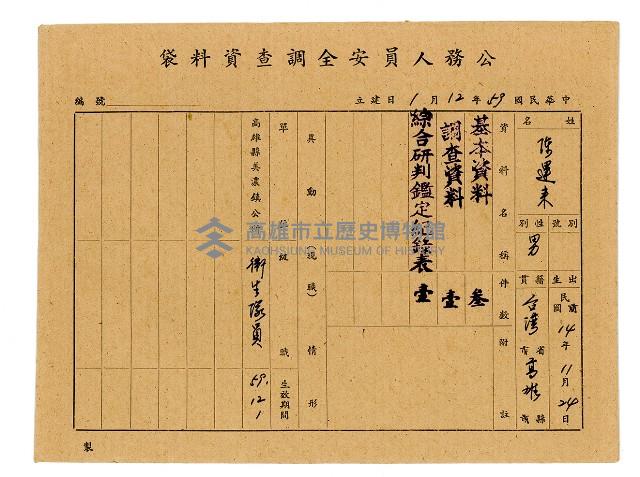 公務人員安全調查資料袋
中華民國59年12月1日建立
編號
姓名
陳運來
別號
性別
男
出生
民國前14年11月24日
籍貫
台灣省高雄縣
資料名稱
件數
附註
基本資料
叁
調查資料
壹
綜合研判鑑定紀錄表
壹
異動(現職)情形
單位
級職
生效期間
高雄縣美濃鎮公所
衛生隊員
59.12.1
高雄市立歷史博物館
KAOHSIUNG MUSEUM OF HISTORY
製